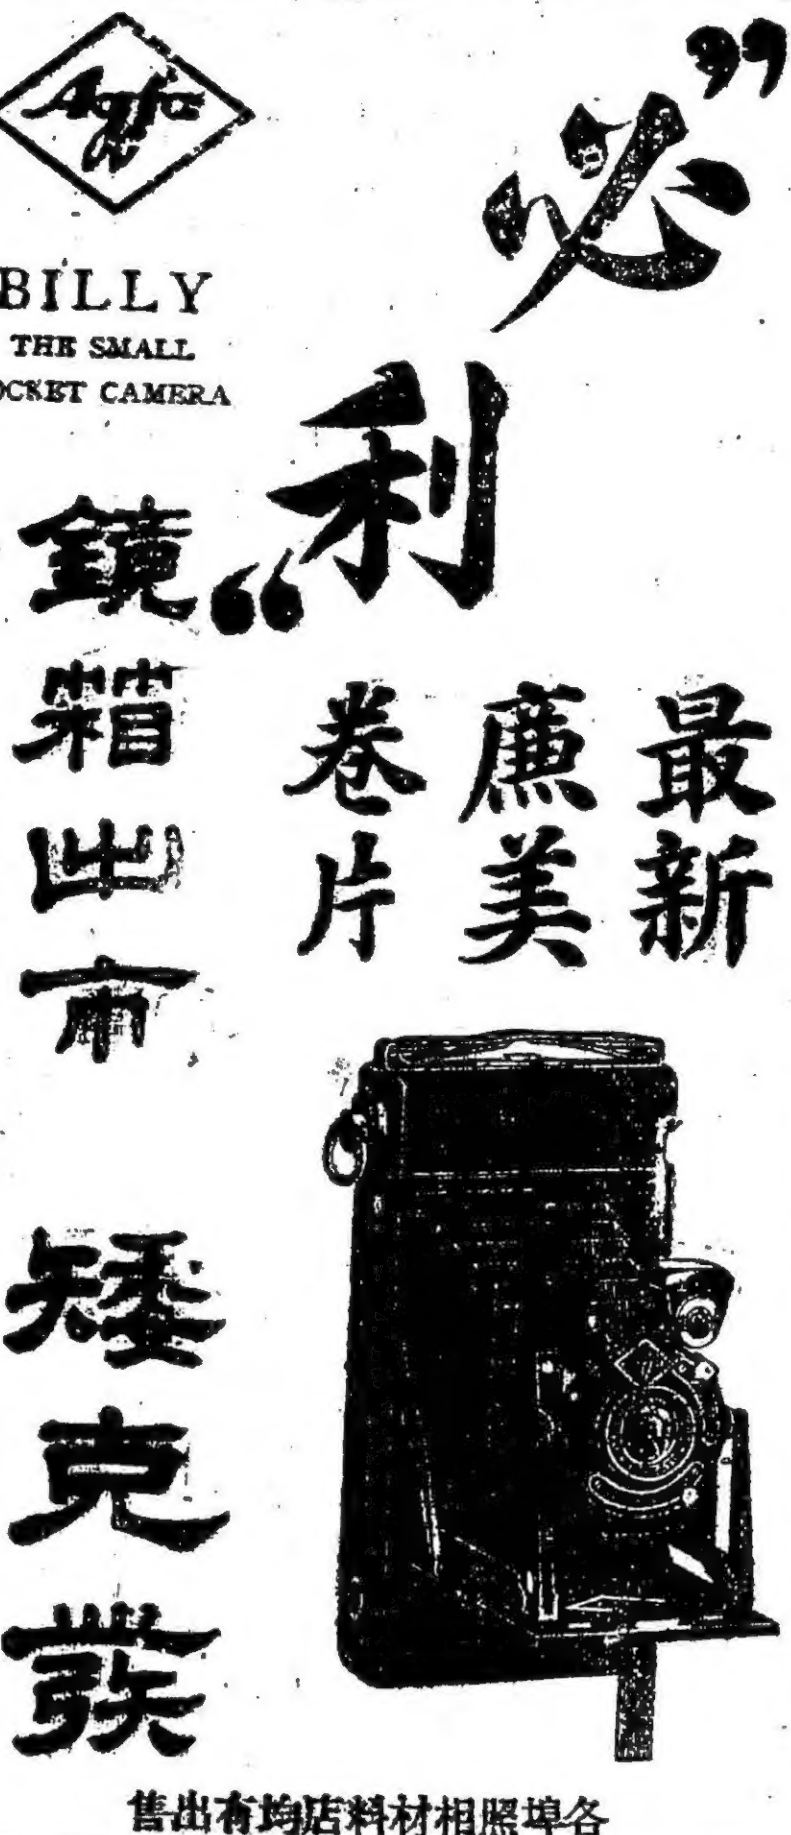 Agfa
BILLY
THE SMALL
OCKET CAMERA
”必利“
最新
廉美
卷片
鏡箱出市
矮克發
各埠照相材料店均有出售